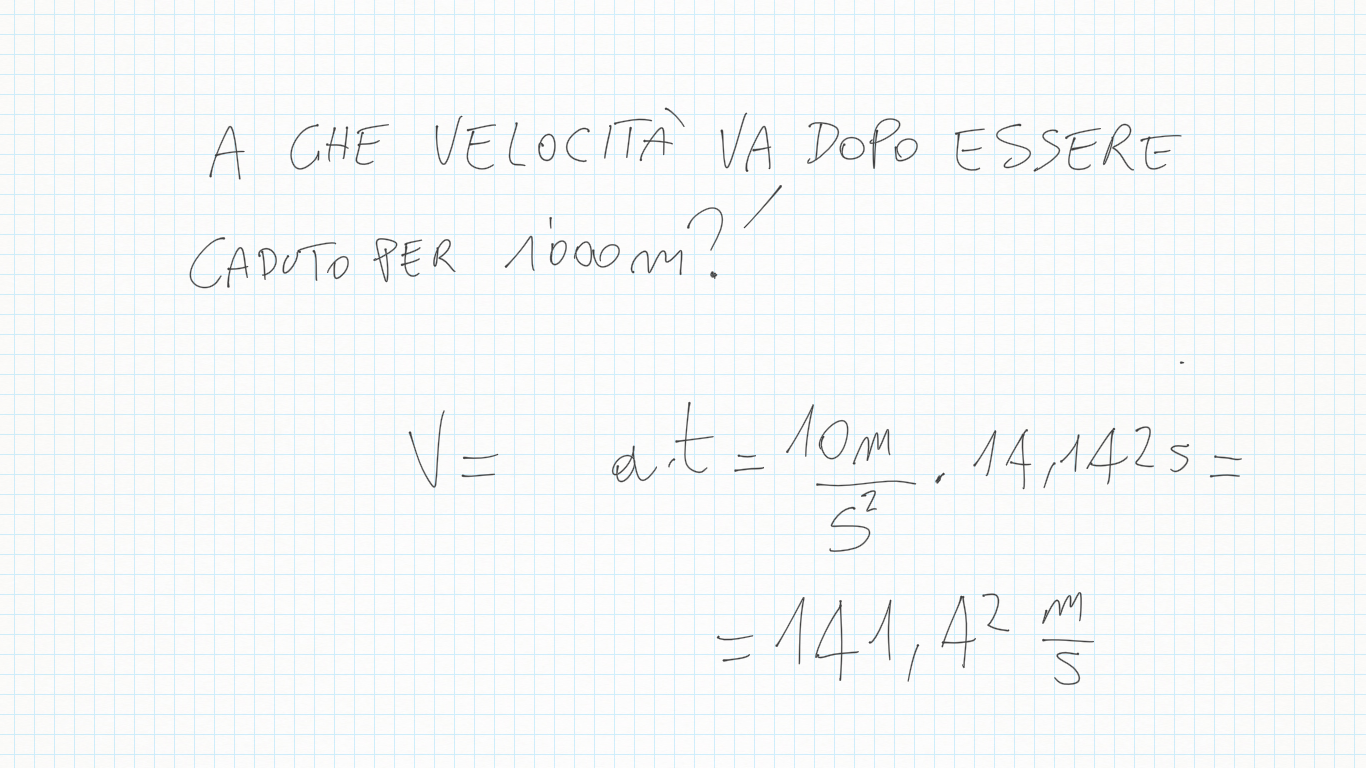 A CHE VELOCITÀ VA DOPO ESSERE
CADUTO PER 1'000m?
V = a·t = 10m/s² · 14,142s =
= 141,42 m/s